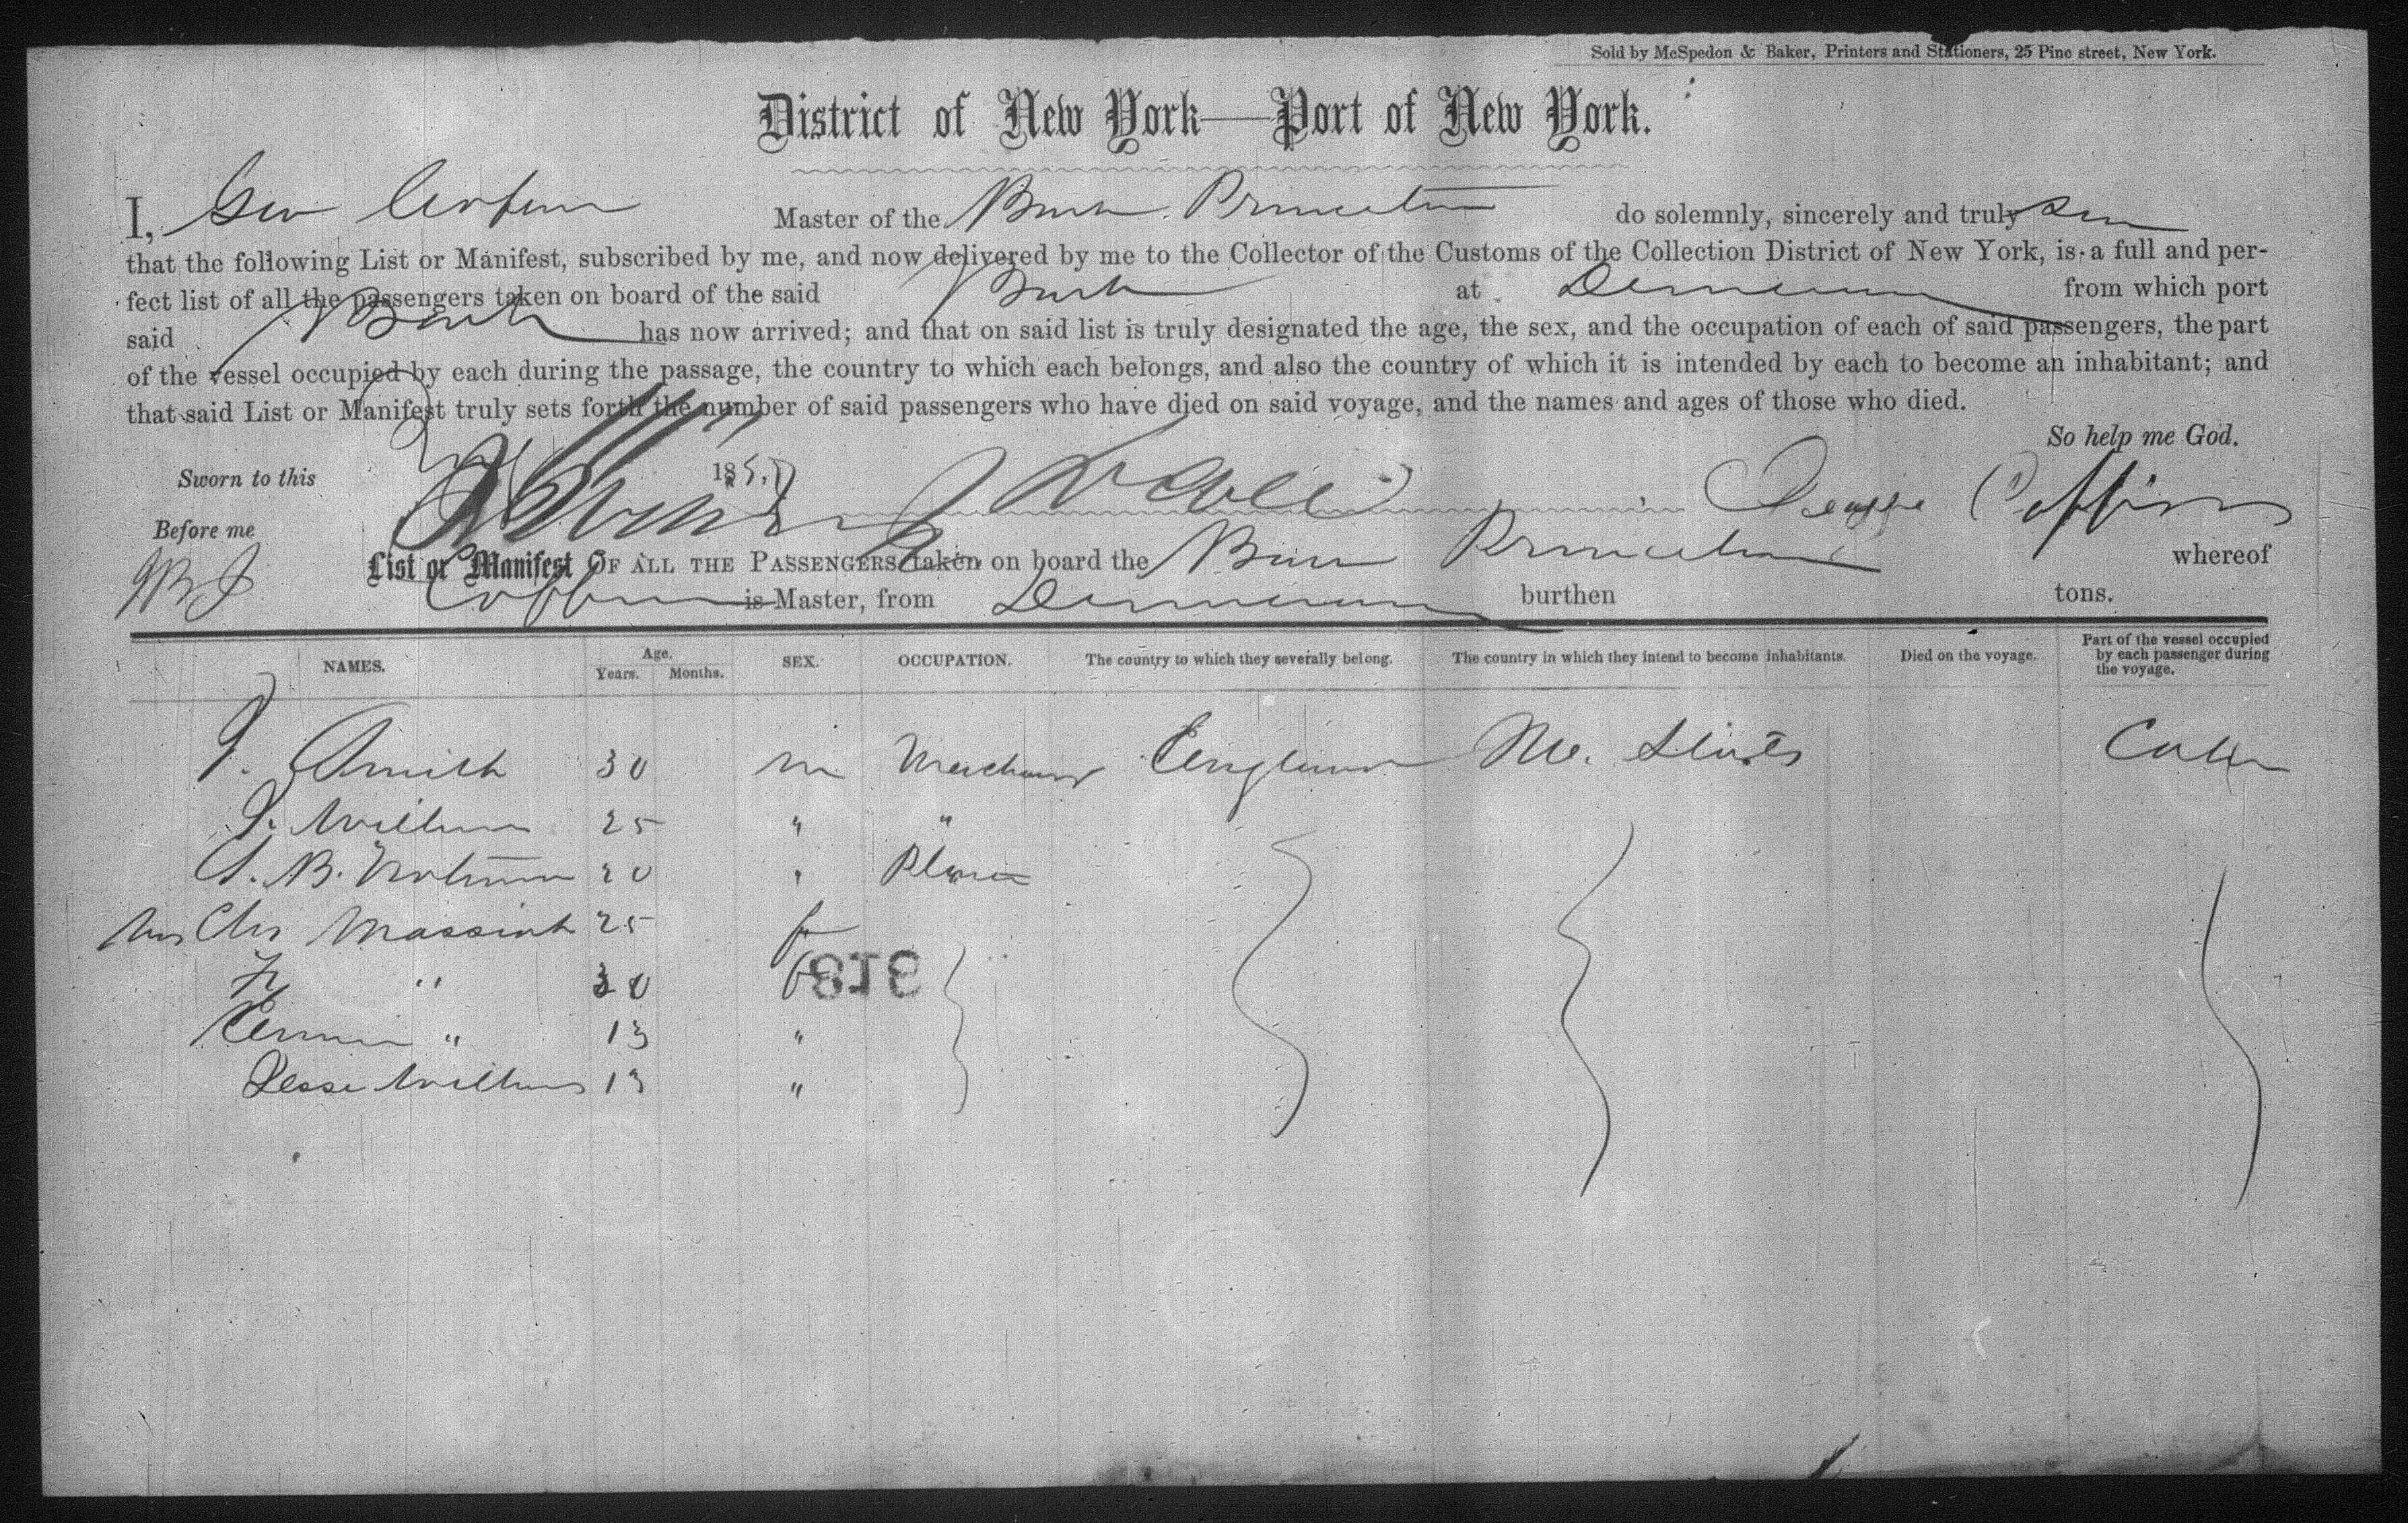 Sold by McSpedon & Baker, Printers and Stationers, 25 Pine street, New York.
District of New York—Port of New York.
I, Geo Coffin Master of the Bark Princeton do solemnly, sincerely and truly
that the following List or Manifest, subscribed by me, and now delivered by me to the Collector of the Customs of the Collection District of New York, is a full and per-
fect list of all the passengers taken on board of the said Bark at Demerara from which port
said Bark has now arrived; and that on said list is truly designated the age, the sex, and the occupation of each of said passengers, the part
of the vessel occupied by each during the passage, the country to which each belongs, and also the country of which it is intended by each to become an inhabitant; and
that said List or Manifest truly sets forth the number of said passengers who have died on said voyage, and the names and ages of those who died.
So help me God.
Sworn to this 185
George Coffin
Before me
List or Manifest OF ALL THE PASSENGERS taken on board the Bark Princeton whereof
Coffin is Master, from Demerara burthen tons.
NAMES. Age. Years. Months. SEX. OCCUPATION. The country to which they severally belong. The country in which they intend to become inhabitants. Died on the voyage. Part of the vessel occupied by each passenger during the voyage.
Smith 30 m Merchant England States
25 " "
B. 20 "
Mrs 25 f
" 30
" 13 "
13 "
816